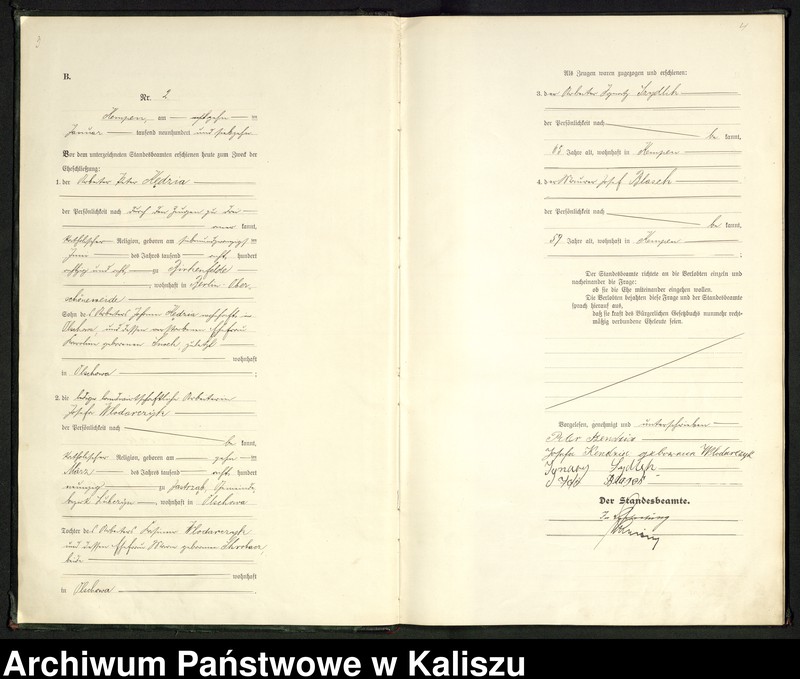 3
B.
Nr. 2
Kempen, am achtzehn ten
Januar tausend neunhundert und siebzehn
Vor dem unterzeichneten Standesbeamten erschienen heute zum Zweck der
Eheschließung:
1. der Arbeiter Peter Hędzia
der Persönlichkeit nach durch den Zeugen zu drei
kannt,
katholischer Religion, geboren am siebundzwanzigsten
Juni des Jahres tausend acht hundert
achtzig und acht zu Birkenfelde
, wohnhaft in Berlin-Ober-
schöneweide
Sohn des Arbeiters Johann Hędzia wohnhaft in
Olschowa, und dessen verstorbenen Ehefrau
Karolina geborenen zuletzt
wohnhaft
in Olschowa ;
2. die ledige landwirtschaftliche Arbeiterin
Josefa Wlodarczyk
der Persönlichkeit nach
be kannt,
katholischer Religion, geboren am zehn ten
März des Jahres tausend acht hundert
neunzig zu Jastrząb, Gemeinde-
bezirk , wohnhaft in Olschowa
Tochter des Arbeiters Wlodarczyk
und dessen Ehefrau Maria geborenen
beide
wohnhaft
in Olschowa .
4
Als Zeugen waren zugezogen und erschienen:
3. der Arbeiter Ignatz Szydlik
der Persönlichkeit nach
be kannt,
68 Jahre alt, wohnhaft in Kempen
4. der Maurer Josef Blasch
der Persönlichkeit nach
be kannt,
59 Jahre alt, wohnhaft in Kempen ;
Der Standesbeamte richtete an die Verlobten einzeln und
nacheinander die Frage:
ob sie die Ehe miteinander eingehen wollen.
Die Verlobten bejahten diese Frage und der Standesbeamte
sprach hierauf aus,
daß sie kraft des Bürgerlichen Gesetzbuchs nunmehr recht-
mäßig verbundene Eheleute seien.
Vorgelesen, genehmigt und unterschrieben
Peter
Josefa geborene Wlodarczyk
Ignacy
Der Standesbeamte.
In Vertretung
Archiwum Państwowe w Kaliszu